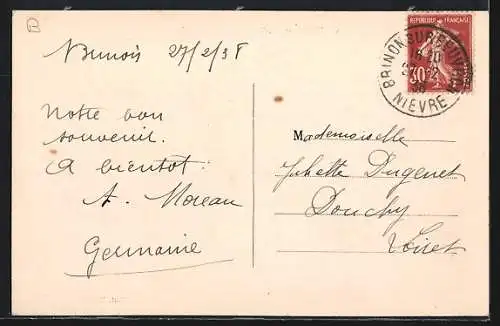 27/2/38
Notre bon
souvenir.
A bientôt.
A. Moreau
Germaine
REPUBLIQUE FRANÇAISE
30
BRINON SUR BEUVRON
NIEVRE
Mademoiselle
Juliette Dugenet
Douchy
Loiret